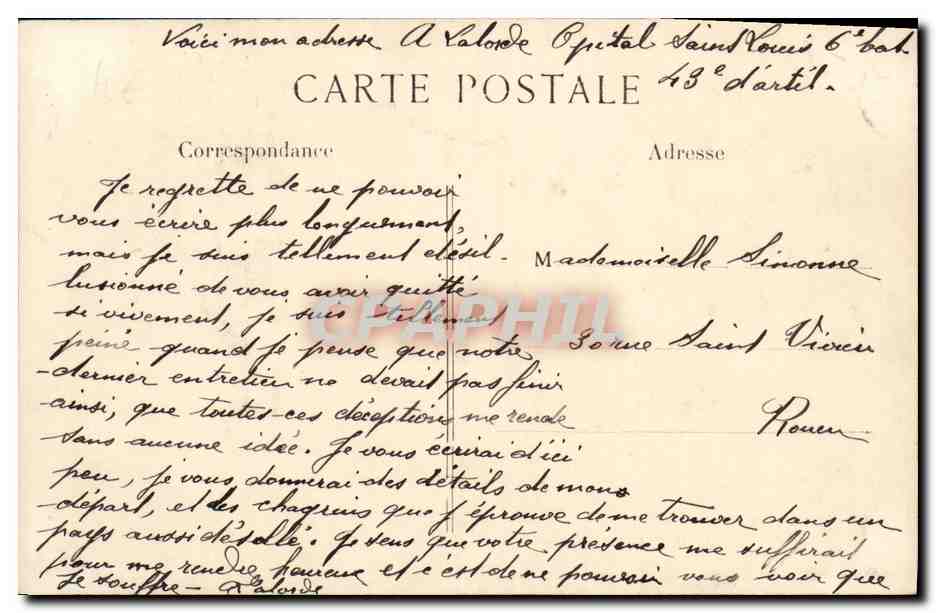 Voici mon adresse A Lalorde Opital Saint Louis 6e bat.
43e d'artil.
CARTE POSTALE
Correspondance
Adresse
Je regrette de ne pouvoir
vous écrire plus longuement,
mais je suis tellement désil-
lusionné de vous avoir quitté
si vivement, je suis tellement
peiné quand je pense que notre
dernier entretien ne devait pas finir
ainsi, que toutes ces déceptions me rende
sans aucune idée. Je vous écrirai d'ici
peu, je vous donnerai des détails de mon
départ, et des chagrins que j'éprouve de me trouver dans un
pays aussi désolé. Je sens que votre présence me suffirait
pour me rendre heureux et c'est de ne pouvoir vous voir que
je souffre - A Lalorde
Mademoiselle Simonne
30 rue Saint Vivien
Rouen
CPAPHIL